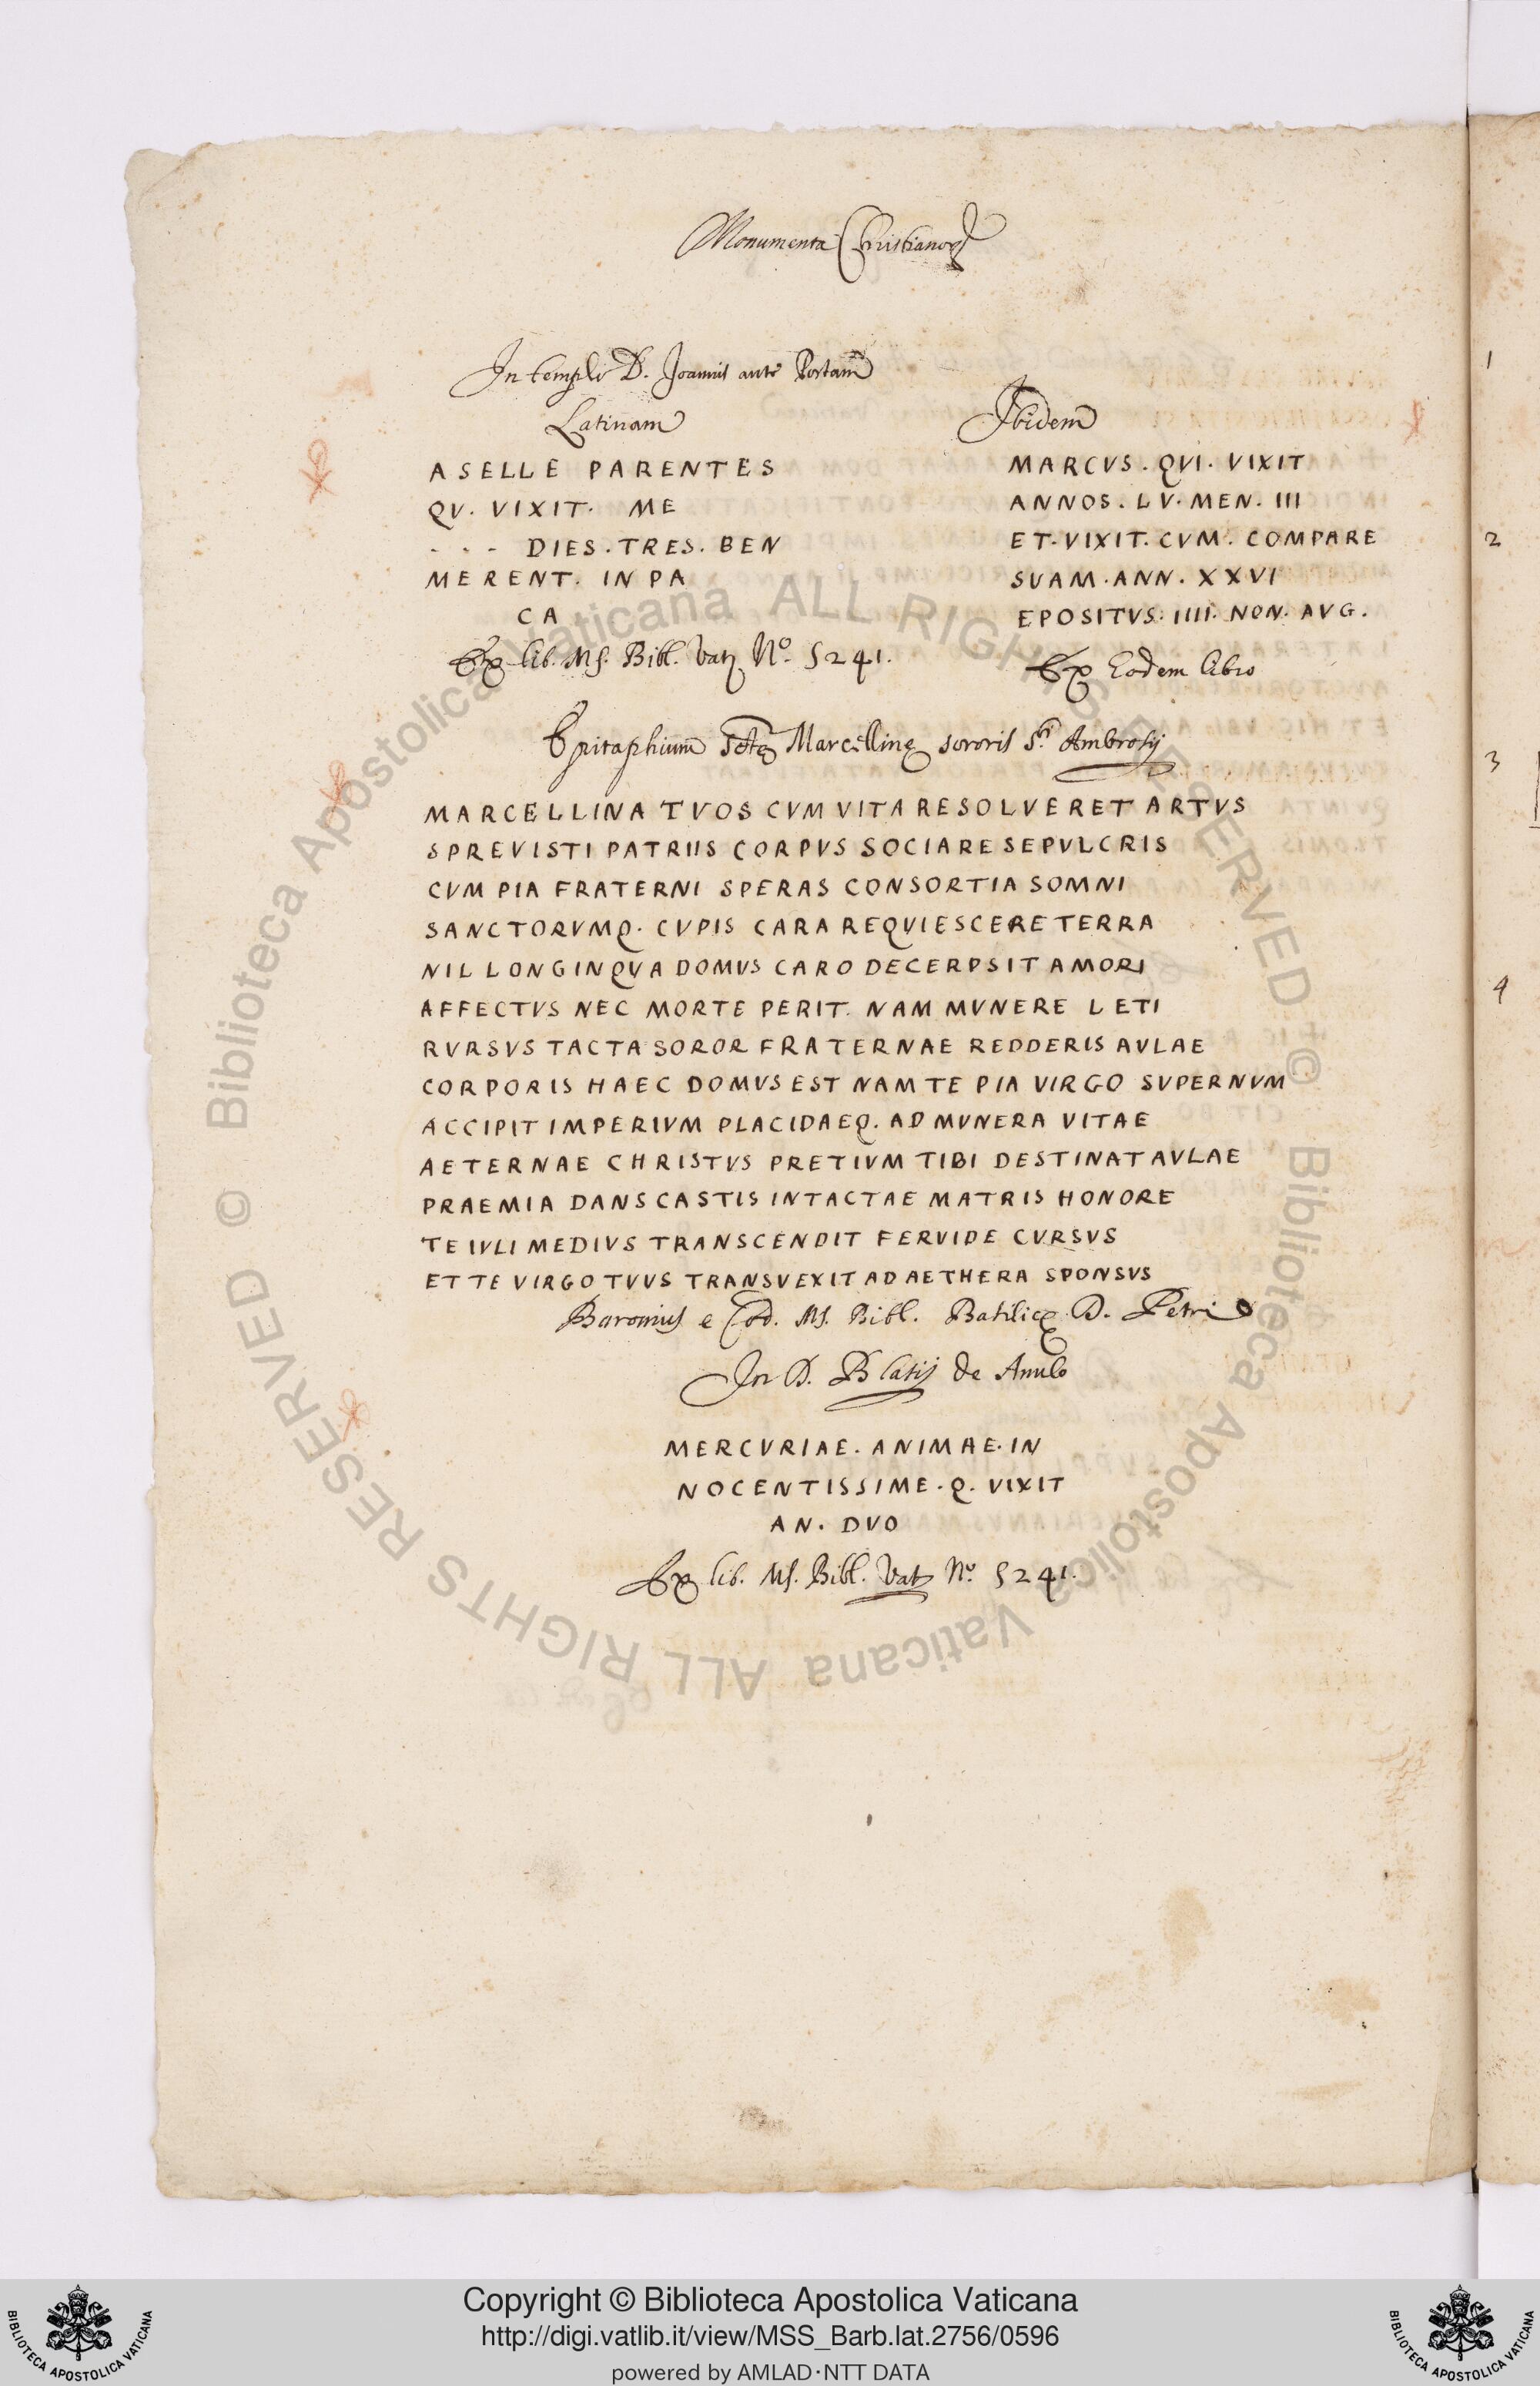 Monumenta Christianorꝝ
In templo D. Joannis ante Portam
Latinam
ASELLE PARENTES
QV. VIXIT. ME
. . . DIES. TRES. BEN
MERENT. IN PA
CA
Ex lib. Ms. Bibl. Vat. Nº. 5241.
Ibidem
MARCVS. QVI. VIXIT
ANNOS. LV. MEN. III
ET. VIXIT. CVM. COMPARE
SVAM. ANN. XXVI
EPOSITVS. IIII. NON. AVG.
Ex Eodem libro
Epitaphium Sctę Marcellinę sororis S.ti Ambrosij
MARCELLINA TVOS CVM VITA RESOLVERET ARTVS
SPREVISTI PATRIIS CORPVS SOCIARE SEPVLCRIS
CVM PIA FRATERNI SPERAS CONSORTIA SOMNI
SANCTORVMQ. CVPIS CARA REQVIESCERE TERRA
NIL LONGINQVA DOMVS CARO DECERPSIT AMORI
AFFECTVS NEC MORTE PERIT. NAM MVNERE LETI
RVRSVS TACTA SOROR FRATERNAE REDDERIS AVLAE
CORPORIS HAEC DOMVS EST NAM TE PIA VIRGO SVPERNVM
ACCIPIT IMPERIVM PLACIDAEQ. AD MVNERA VITAE
AETERNAE CHRISTVS PRETIVM TIBI DESTINAT AVLAE
PRAEMIA DANS CASTIS INTACTAE MATRIS HONORE
TE IVLI MEDIVS TRANSCENDIT FERVIDE CVRSVS
ET TE VIRGO TVVS TRANSVEXIT AD AETHERA SPONSVS
Baronius e Cod. Ms. Bibl. Basilicę D. Petri
In D. Blasij de Anulo
MERCVRIAE. ANIMAE. IN
NOCENTISSIME. Q. VIXIT
AN. DVO
Ex lib. Ms. Bibl. Vat. Nº. 5241.
1
2
3
4
© Biblioteca Apostolica Vaticana ALL RIGHTS RESERVED © Biblioteca Apostolica Vaticana ALL RIGHTS RESERVED
Copyright © Biblioteca Apostolica Vaticana
http://digi.vatlib.it/view/MSS_Barb.lat.2756/0596
powered by AMLAD·NTT DATA
BIBLIOTECA APOSTOLICA VATICANA
BIBLIOTECA APOSTOLICA VATICANA